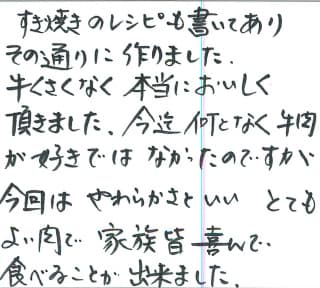 すき焼きのレシピも書いてあり
その通りに作りました.
牛くさくなく本当においしく
頂きました、今迄何となく牛肉
が好きではなかったのですが
今回はやわらかさといいとても
よい肉で家族皆喜んで
食べることが出来ました.